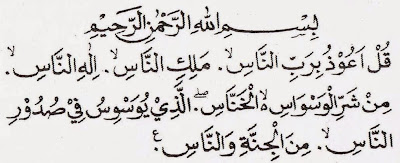 بِسْمِ اللهِ الرَّحْمٰنِ الرَّحِيْمِ
قُلْ اَعُوْذُ بِرَبِّ النَّاسِۙ. مَلِكِ النَّاسِۙ. اِلٰهِ النَّاسِۙ.
مِنْ شَرِّ الْوَسْوَاسِ ەۙ الْخَنَّاسِۖ. الَّذِيْ يُوَسْوِسُ فِيْ صُدُوْرِ
النَّاسِۙ. مِنَ الْجِنَّةِ وَالنَّاسِ ࣖ.